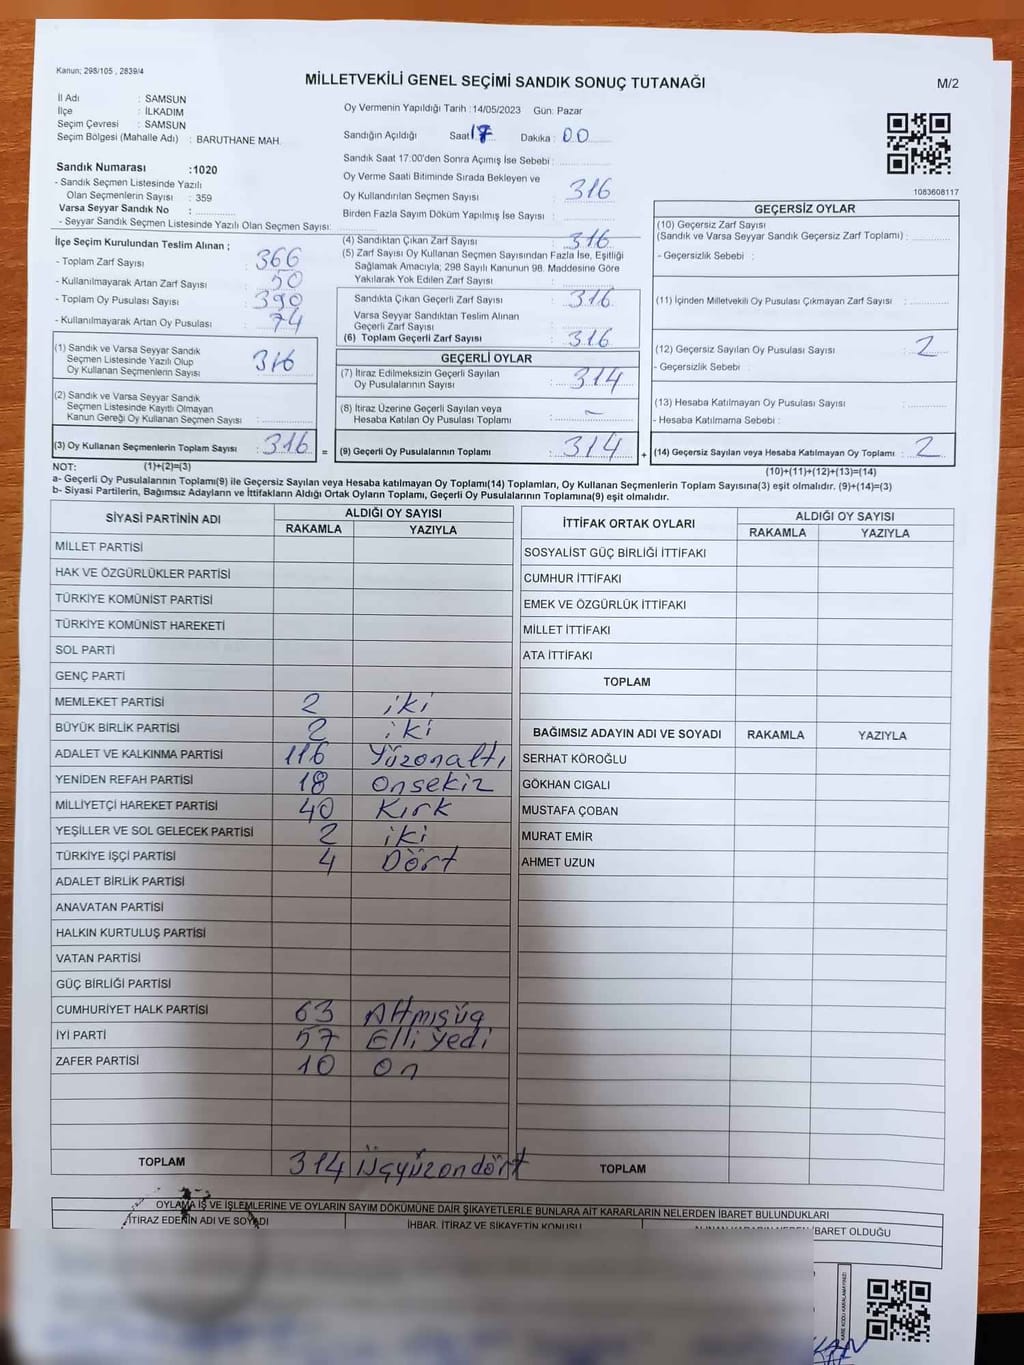 Kanun; 298/105 , 2839/4
MİLLETVEKİLİ GENEL SEÇİMİ SANDIK SONUÇ TUTANAĞI
M/2
İl Adı : SAMSUN
İlçe : İLKADIM
Seçim Çevresi : SAMSUN
Seçim Bölgesi (Mahalle Adı) : BARUTHANE MAH.
Sandık Numarası :1020
- Sandık Seçmen Listesinde Yazılı
Olan Seçmenlerin Sayısı : 359
Varsa Seyyar Sandık No :
- Seyyar Sandık Seçmen Listesinde Yazılı Olan Seçmen Sayısı:
Oy Vermenin Yapıldığı Tarih :14/05/2023 Gün: Pazar
Sandığın Açıldığı Saat 17 Dakika : 00
Sandık Saat 17:00'den Sonra Açımış İse Sebebi :
Oy Verme Saati Bitiminde Sırada Bekleyen ve
Oy Kullandırılan Seçmen Sayısı : 316
Birden Fazla Sayım Döküm Yapılmış İse Sayısı :
1083608117
İlçe Seçim Kurulundan Teslim Alınan ;
- Toplam Zarf Sayısı : 366
- Kullanılmayarak Artan Zarf Sayısı : 50
- Toplam Oy Pusulası Sayısı : 390
- Kullanılmayarak Artan Oy Pusulası : 74
(1) Sandık ve Varsa Seyyar Sandık
Seçmen Listesinde Yazılı Olup
Oy Kullanan Seçmenlerin Sayısı : 316
(2) Sandık ve Varsa Seyyar Sandık
Seçmen Listesinde Kayıtlı Olmayan
Kanun Gereği Oy Kullanan Seçmen Sayısı :
(3) Oy Kullanan Seçmenlerin Toplam Sayısı : 316 =
(1)+(2)=(3)
(4) Sandıktan Çıkan Zarf Sayısı : 316
(5) Zarf Sayısı Oy Kullanan Seçmen Sayısından Fazla İse, Eşitliği
Sağlamak Amacıyla; 298 Sayılı Kanunun 98. Maddesine Göre
Yakılarak Yok Edilen Zarf Sayısı :
Sandıkta Çıkan Geçerli Zarf Sayısı : 316
Varsa Seyyar Sandıktan Teslim Alınan
Geçerli Zarf Sayısı :
(6) Toplam Geçerli Zarf Sayısı : 316
GEÇERLİ OYLAR
(7) İtiraz Edilmeksizin Geçerli Sayılan
Oy Pusulalarının Sayısı : 314
(8) İtiraz Üzerine Geçerli Sayılan veya
Hesaba Katılan Oy Pusulası Toplamı : -
(9) Geçerli Oy Pusulalarının Toplamı : 314 +
GEÇERSİZ OYLAR
(10) Geçersiz Zarf Sayısı
(Sandık ve Varsa Seyyar Sandık Geçersiz Zarf Toplamı) :
- Geçersizlik Sebebi :
(11) İçinden Milletvekili Oy Pusulası Çıkmayan Zarf Sayısı :
(12) Geçersiz Sayılan Oy Pusulası Sayısı : 2
- Geçersizlik Sebebi :
(13) Hesaba Katılmayan Oy Pusulası Sayısı :
- Hesaba Katılmama Sebebi :
(14) Geçersiz Sayılan veya Hesaba Katılmayan Oy Toplamı : 2
(10)+(11)+(12)+(13)=(14)
NOT:
a- Geçerli Oy Pusulalarının Toplamı(9) ile Geçersiz Sayılan veya Hesaba Katılmayan Oy Toplamı(14) Toplamları, Oy Kullanan Seçmenlerin Toplam Sayısına(3) eşit olmalıdır. (9)+(14)=(3)
b- Siyasi Partilerin, Bağımsız Adayların ve İttifakların Aldığı Ortak Oyların Toplamı, Geçerli Oy Pusulalarının Toplamına(9) eşit olmalıdır.
SİYASİ PARTİNİN ADI ALDIĞI OY SAYISI
RAKAMLA YAZIYLA
MİLLET PARTİSİ
HAK VE ÖZGÜRLÜKLER PARTİSİ
TÜRKİYE KOMÜNİST PARTİSİ
TÜRKİYE KOMÜNİST HAREKETİ
SOL PARTİ
GENÇ PARTİ
MEMLEKET PARTİSİ 2 iki
BÜYÜK BİRLİK PARTİSİ 2 iki
ADALET VE KALKINMA PARTİSİ 116 Yüzonaltı
YENİDEN REFAH PARTİSİ 18 Onsekiz
MİLLİYETÇİ HAREKET PARTİSİ 40 Kırk
YEŞİLLER VE SOL GELECEK PARTİSİ 2 iki
TÜRKİYE İŞÇİ PARTİSİ 4 Dört
ADALET BİRLİK PARTİSİ
ANAVATAN PARTİSİ
HALKIN KURTULUŞ PARTİSİ
VATAN PARTİSİ
GÜÇ BİRLİĞİ PARTİSİ
CUMHURİYET HALK PARTİSİ 63 Altmışüç
İYİ PARTİ 57 Elli yedi
ZAFER PARTİSİ 10 On
TOPLAM 314 Üçyüzondört
İTTİFAK ORTAK OYLARI ALDIĞI OY SAYISI
RAKAMLA YAZIYLA
SOSYALİST GÜÇ BİRLİĞİ İTTİFAKI
CUMHUR İTTİFAKI
EMEK VE ÖZGÜRLÜK İTTİFAKI
MİLLET İTTİFAKI
ATA İTTİFAKI
TOPLAM
BAĞIMSIZ ADAYIN ADI VE SOYADI RAKAMLA YAZIYLA
SERHAT KÖROĞLU
GÖKHAN CIGALI
MUSTAFA ÇOBAN
MURAT EMİR
AHMET UZUN
TOPLAM
OYLAMA İŞ VE İŞLEMLERİNE VE OYLARIN SAYIM DÖKÜMÜNE DAİR ŞİKAYETLERLE BUNLARA AİT KARARLARIN NELERDEN İBARET BULUNDUKLARI
İTİRAZ EDENİN ADI VE SOYADI İHBAR, İTİRAZ VE ŞİKAYETİN KONUSU İBARET OLDUĞU